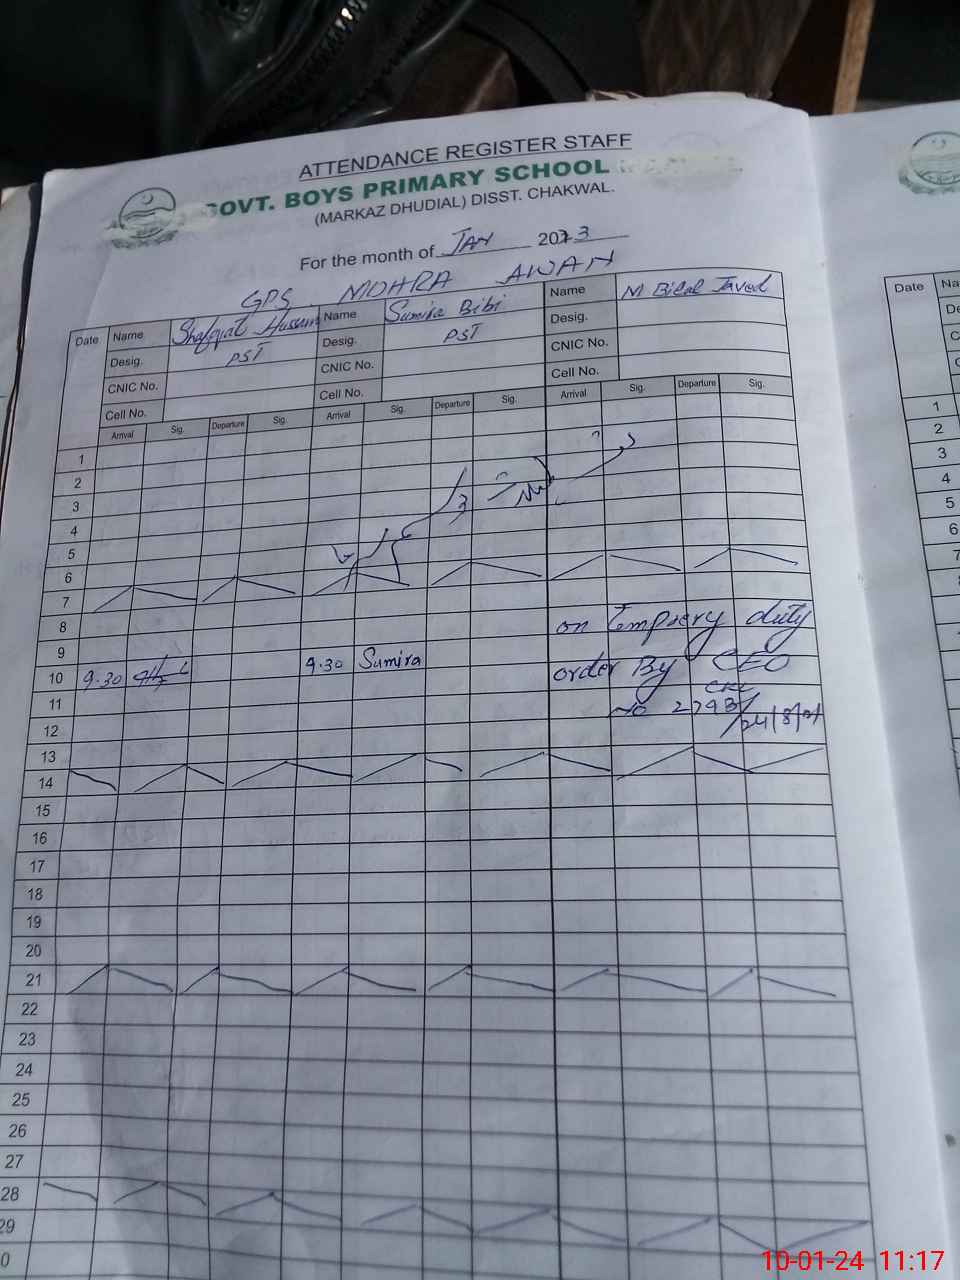 ATTENDANCE REGISTER STAFF
GOVT. BOYS PRIMARY SCHOOL
(MARKAZ DHUDIAL) DISST. CHAKWAL.
For the month of JAN 2023
GPS. MOHRA AWAN
Date Name Shafqat Hussain Name Sumira Bibi Name M Bilal Javed
Desig. PST Desig. PST Desig.
CNIC No. CNIC No. CNIC No.
Cell No. Cell No. Cell No.
Arrival Sig. Departure Sig. Arrival Sig. Departure Sig. Arrival Sig. Departure Sig.
1
2
3
4
5
6
7
8 on Temprery duty
9
10 9.30 9.30 Sumira order By CEO
11 CKL
No 2793/24/8/21
12
13
14
15
16
17
18
19
20
21
22
23
24
25
26
27
28
29
0
Date Na
De
C
C
1
2
3
4
5
6
7
10-01-24 11:17